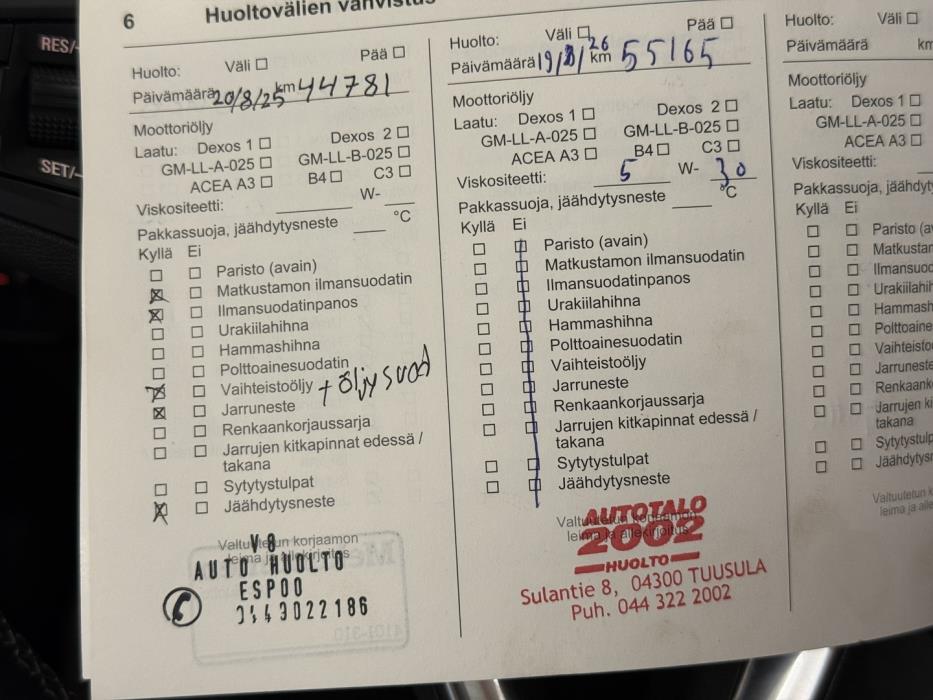 6 Huoltovälien vahvistus
RES/
SET/-
Huolto: Väli ☐ Pää ☐
Päivämäärä 20/8/25 km 44781
Moottoriöljy
Laatu: Dexos 1 ☐ Dexos 2 ☐
GM-LL-A-025 ☐ GM-LL-B-025 ☐
ACEA A3 ☐ B4 ☐ C3 ☐
Viskositeetti: ______ W- ___
Pakkassuoja, jäähdytysneste ___ °C
Kyllä Ei
☐ ☐ Paristo (avain)
☒ ☐ Matkustamon ilmansuodatin
☒ ☐ Ilmansuodatinpanos
☐ ☐ Urakiilahihna
☐ ☐ Hammashihna
☐ ☐ Polttoainesuodatin
☒ ☐ Vaihteistoöljy + öljysuod
☒ ☐ Jarruneste
☐ ☐ Renkaankorjaussarja
☐ ☐ Jarrujen kitkapinnat edessä /
takana
☐ ☐ Sytytystulpat
☒ ☐ Jäähdytysneste
Valtuutetun korjaamon
leima ja allekirjoitus
V8
AUTO HUOLTO
ESPOO
0443022186
Huolto: Väli ☐ Pää ☐
Päivämäärä 19/8/26 km 55165
Moottoriöljy
Laatu: Dexos 1 ☐ Dexos 2 ☐
GM-LL-A-025 ☐ GM-LL-B-025 ☐
ACEA A3 ☐ B4 ☐ C3 ☐
Viskositeetti: 5 W- 30
Pakkassuoja, jäähdytysneste ___ °C
Kyllä Ei
☐ ☐ Paristo (avain)
☐ ☐ Matkustamon ilmansuodatin
☐ ☐ Ilmansuodatinpanos
☐ ☐ Urakiilahihna
☐ ☐ Hammashihna
☐ ☐ Polttoainesuodatin
☐ ☐ Vaihteistoöljy
☐ ☐ Jarruneste
☐ ☐ Renkaankorjaussarja
☐ ☐ Jarrujen kitkapinnat edessä /
takana
☐ ☐ Sytytystulpat
☐ ☐ Jäähdytysneste
Valtuutetun korjaamon
leima ja allekirjoitus
AUTOTALO
2002
HUOLTO
Sulantie 8, 04300 TUUSULA
Puh. 044 322 2002
Huolto: Väli ☐
Päivämäärä km
Moottoriöljy
Laatu: Dexos 1 ☐
GM-LL-A-025 ☐
ACEA A3 ☐
Viskositeetti:
Pakkassuoja, jäähdyt
Kyllä Ei
☐ ☐ Paristo (av
☐ ☐ Matkustar
☐ ☐ Ilmansuod
☐ ☐ Urakiilahi
☐ ☐ Hammash
☐ ☐ Polttoaine
☐ ☐ Vaihteisto
☐ ☐ Jarruneste
☐ ☐ Renkaanko
☐ ☐ Jarrujen ki
takana
☐ ☐ Sytytystulp
☐ ☐ Jäähdytysn
Valtuutetun k
leima ja alle